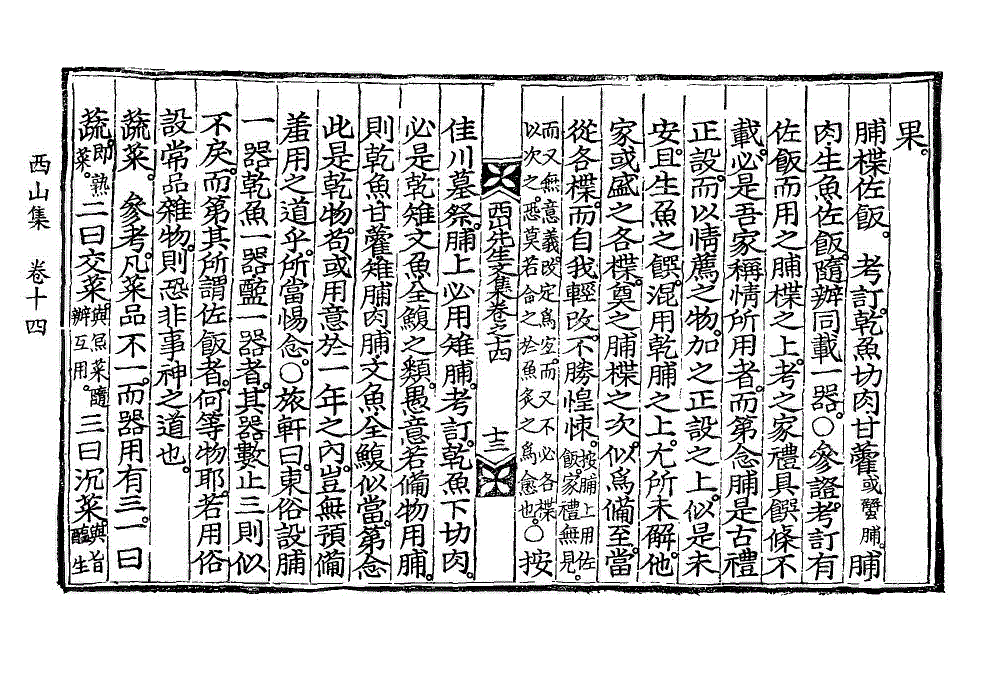 果。
脯楪佐飯。考訂。乾魚切肉甘藿或蟹脯。脯
肉生魚佐飯。隨辨同載一器。○參證。考訂有
佐飯而用之脯楪之上。考之家禮具饌條不
載。必是吾家稱情所用者。而第念脯是古禮
正設。而以情薦之物。加之正設之上。似是未
安。且生魚之饌。混用乾脯之上。尤所未解。他
家或盛之各楪。奠之脯楪之次。似爲備至。當
從各楪。而自我輕改。不勝惶悚。按脯上用佐飯。家禮無見。
而又無意義。改定爲宜。而又不必各楪以次之。悉莫若合之於魚炙之爲愈也。○按
西山先生文集卷之十四 十三
佳川墓祭。脯上必用雉脯。考訂。乾魚下切肉。
必是乾雉文魚全鰒之類。愚意若備物用脯。
則乾魚甘藿雉脯肉脯文魚全鰒似當。第念
此是乾物。苟或用意於一年之內。豈無預備
羞用之道乎。所當惕念。○旅軒曰。東俗設脯
一器乾魚一器醢一器者。其器數止三則似
不戾。而第其所謂佐飯者。何等物耶。若用俗
設常品雜物。則恐非事神之道也。
蔬菜。參考。凡菜品不一。而器用有三。一曰
蔬。卽熟菜。二曰交菜與魚菜隨辨互用。三曰沉菜。與旨醢生
西山集 卷十四